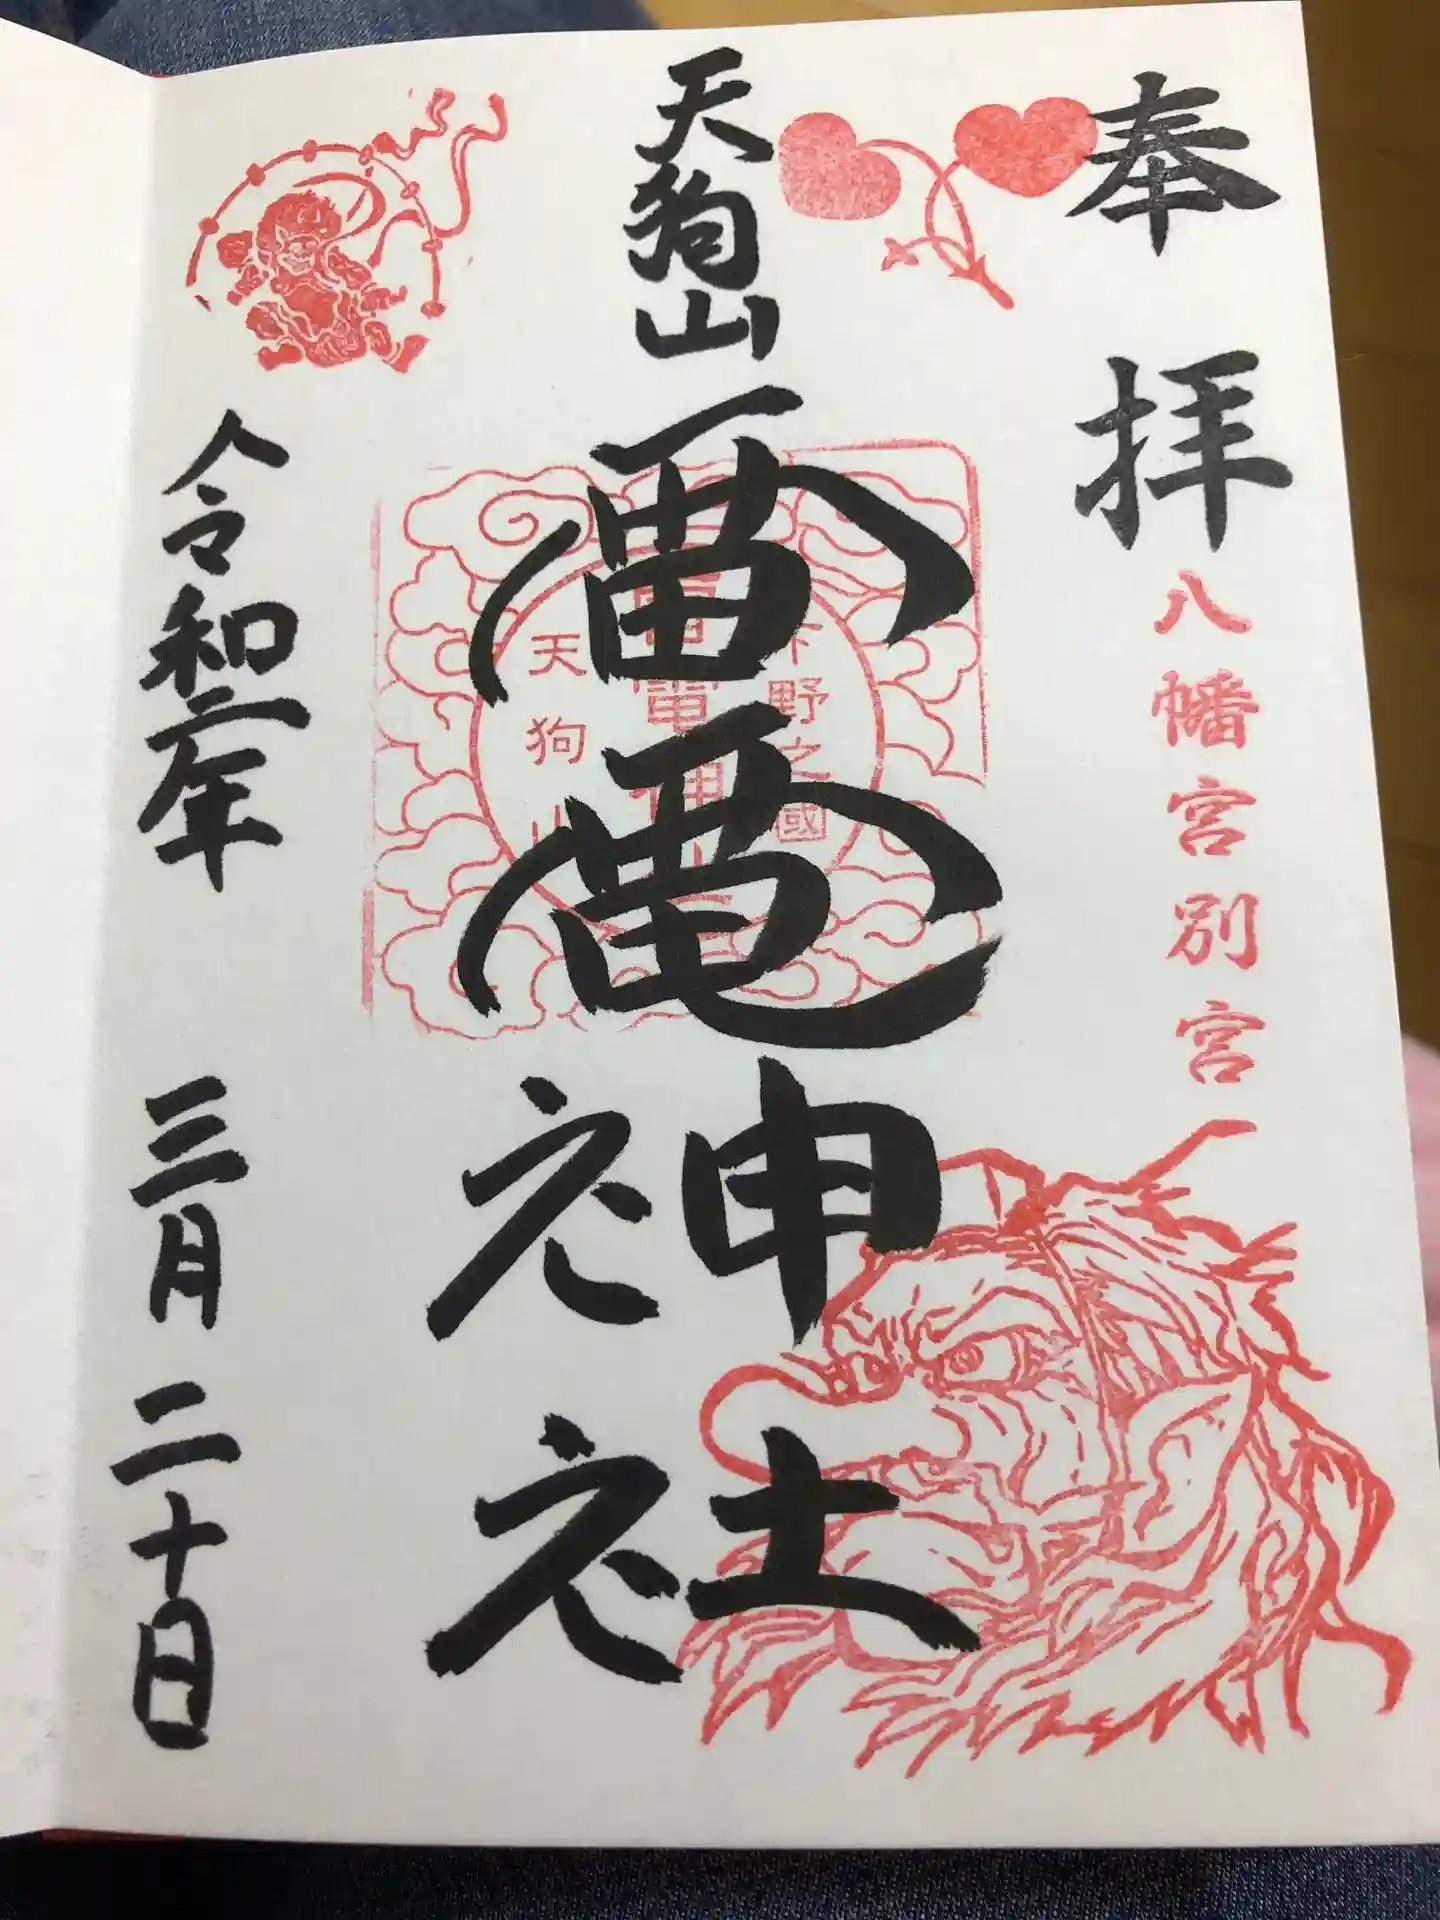 奉拝
八幡宮別宮
天狗山
雷電神社
下野之國
雷電神社
天狗山
令和二年 三月二十日